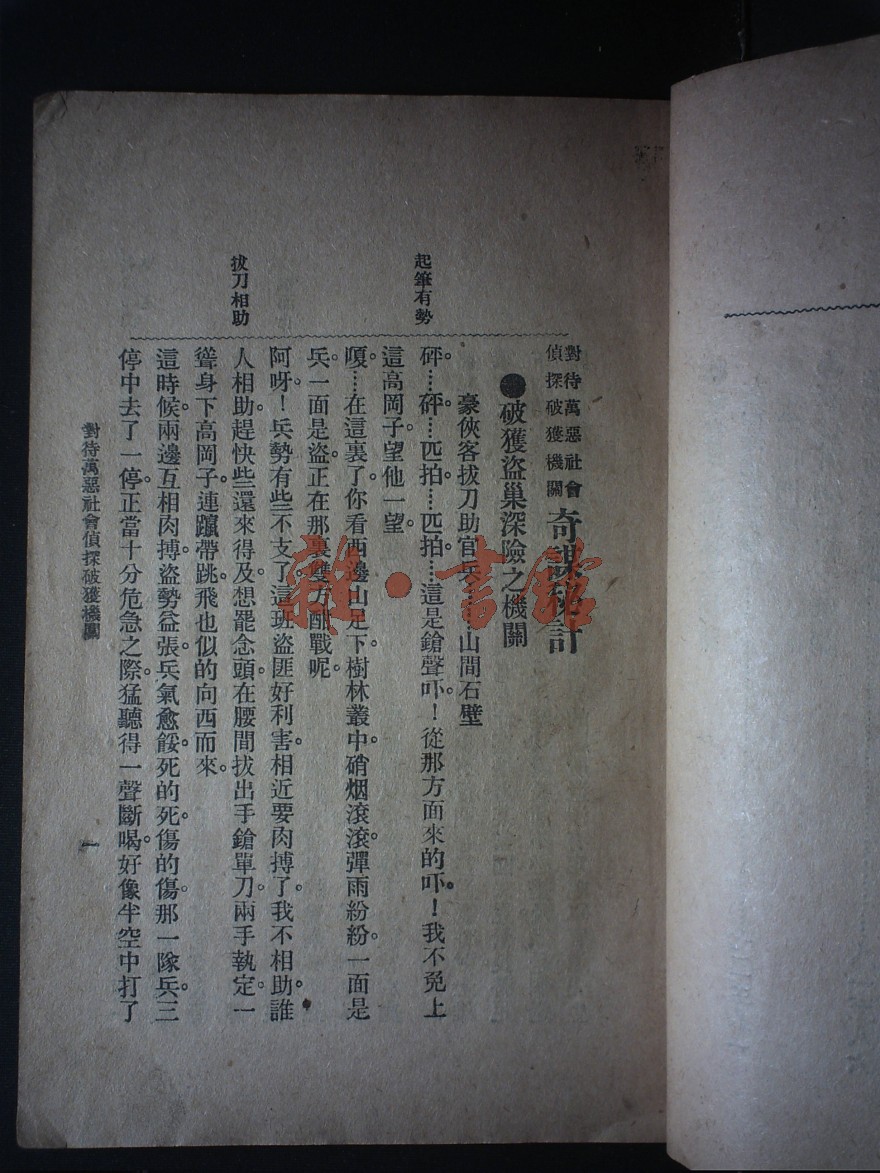 對待萬惡社會
偵探破獲機關
奇謀秘計
●破獲盜巢深險之機關
豪俠客拔刀助官兵
山間石壁
起筆有勢
砰⋯砰⋯匹拍⋯匹拍⋯這是鎗聲吓！從那方面來的吓！我不免上
這高岡子望他一望。
嗄⋯在這裏了。你看西邊山足下。樹林叢中。硝烟滾滾。彈雨紛紛。一面是
兵。一面是盜。正在那裏雙方酣戰呢。
阿呀！兵勢有些不支了。這班盜匪好利害。相近要肉搏了。我不相助。誰
拔刀相助
人相助。趕快些。還來得及。想罷念頭。在腰間拔出手鎗單刀。兩手執定。一
聳身下高岡子。連躥帶跳。飛也似的向西而來。
這時候。兩邊互相肉搏。盜勢益張。兵氣愈餒。死的死。傷的傷。那一隊兵。三
停中去了一停。正當十分危急之際。猛聽得一聲斷喝。好像半空中打了
對待萬惡社會偵探破獲機關
一
雜·書館